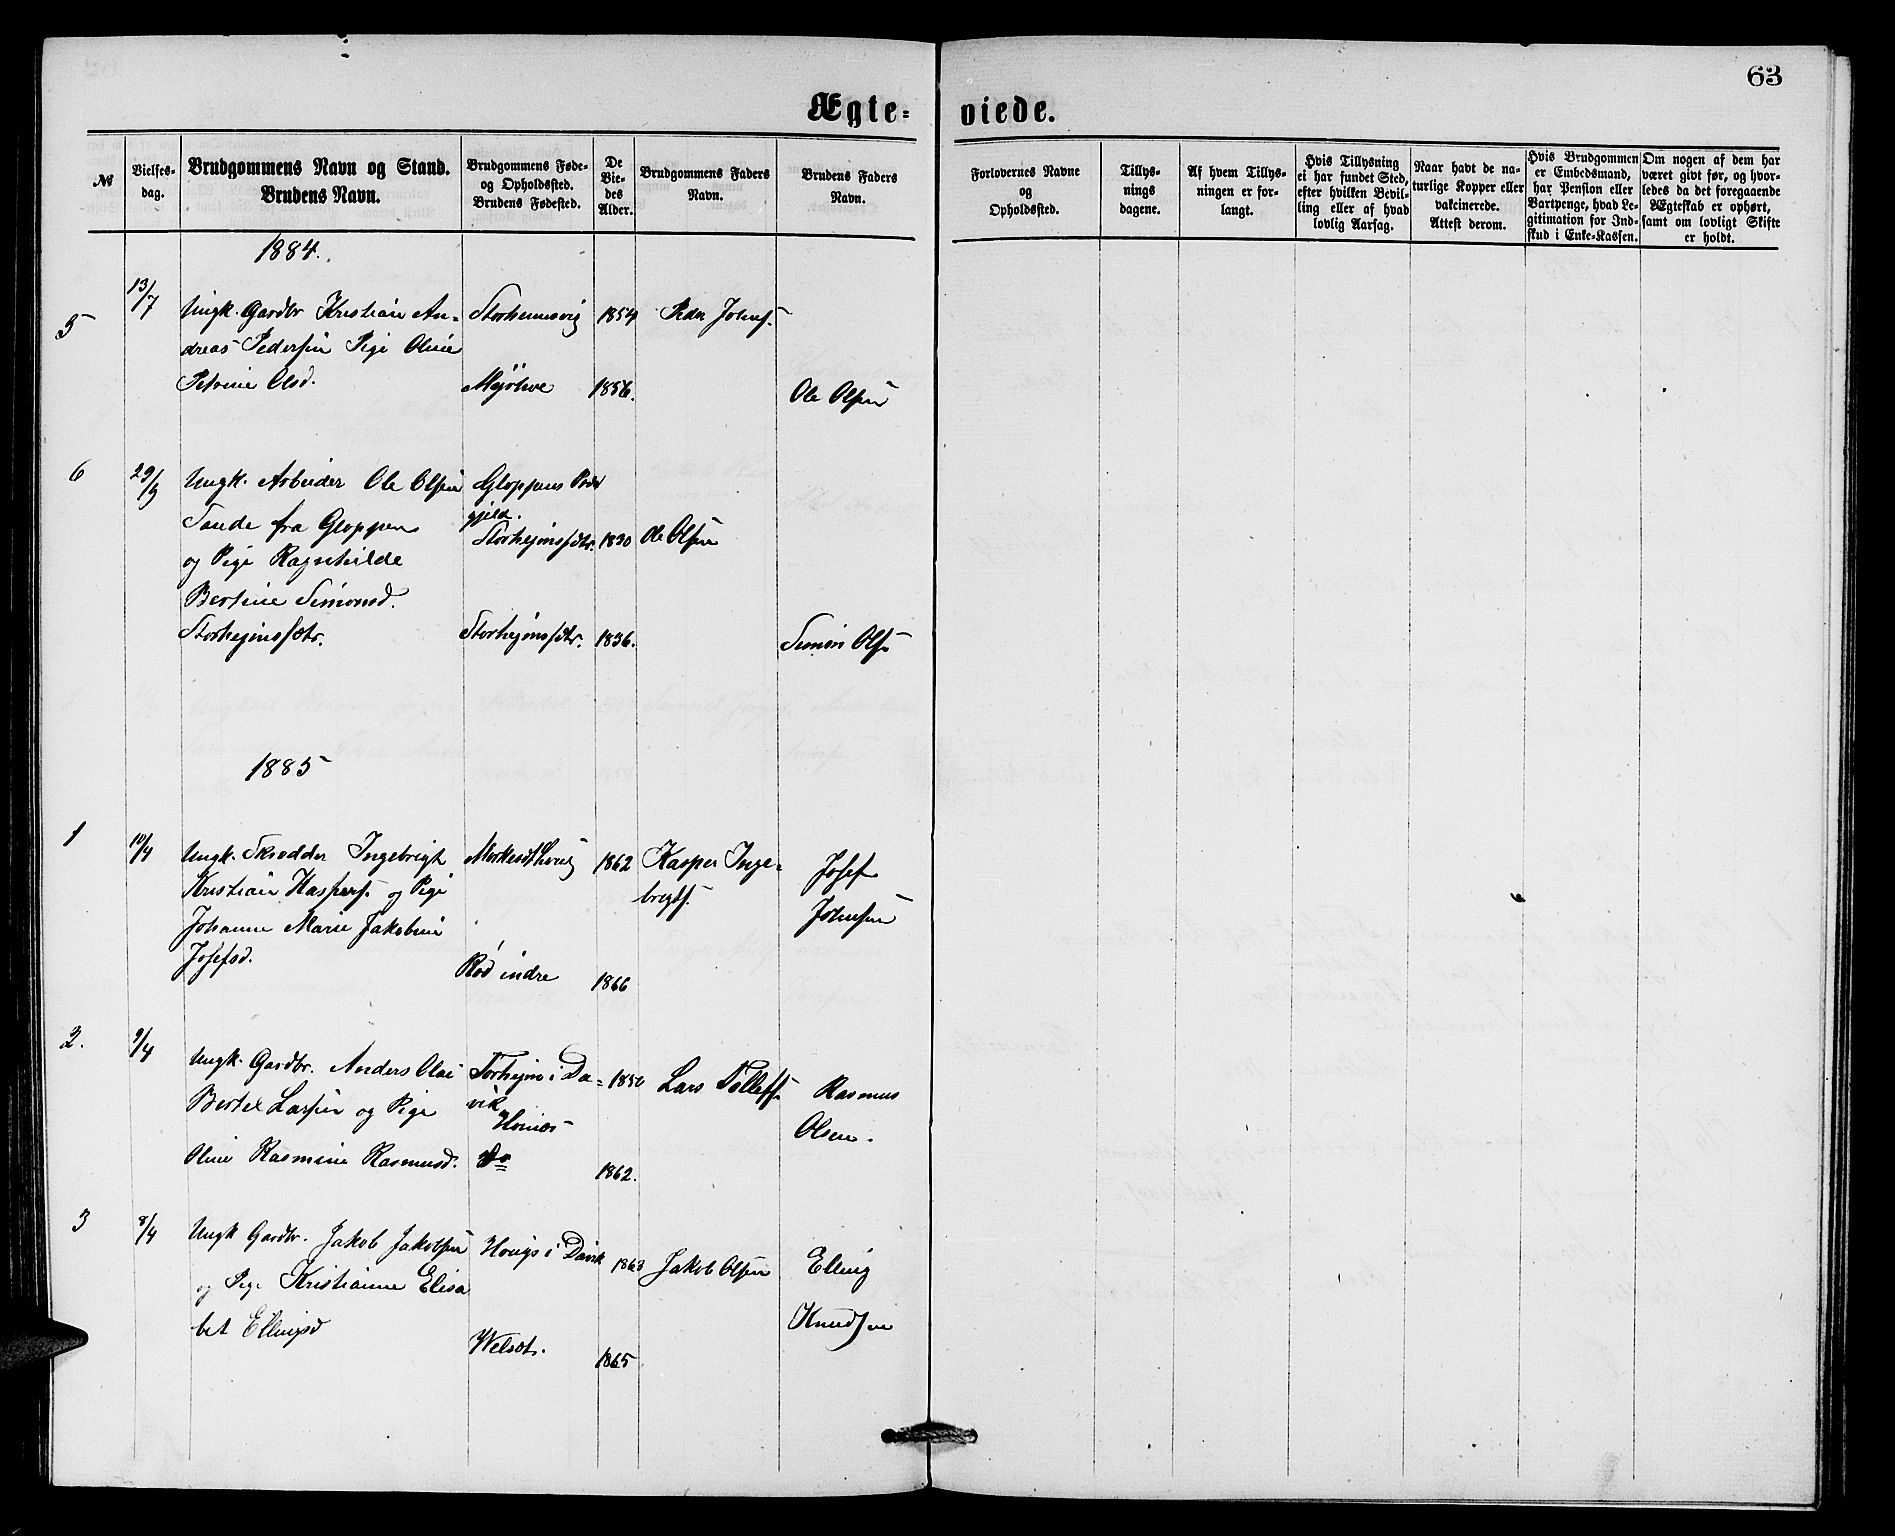 63
Ægte= viede.
№
Vielses-
dag.
Brudgommens Navn og Stand.
Brudens Navn.
Brudgommens Føde-
og Opholdssted.
Brudens Fødested.
De
Vie-
des
Alder.
Brudgommens Faders
Navn.
Brudens Faders
Navn.
Forlovernes Navne
og
Opholdssted.
Tillys-
nings
dagene.
Af hvem Tillys-
ningen er for-
langt.
Hvis Tillysning
ei har fundet Sted,
efter hvilken Bevil-
ling eller af hvad
lovlig Aarsag.
Naar havt de na-
turlige Kopper eller
vakcinerede.
Attest derom.
Hvis Brudgommen
er Embedsmand,
har Pension eller
Vartpenge, hvad Le-
gitimation for Ind-
skud i Enke-Kassen.
Om nogen af dem har
været givt før, og hvor-
ledes da det foregaaende
Ægteskab er ophørt,
samt om lovligt Skifte
er holdt.
1884.
5
13/7
Ungk. Gardbr Kristian An-
dreas Pedersen Pige Oline
Petrine Olsd.
1854
1856.
Ole Olsen
6
29/9
Ungk. Arbeider Ole Olsen
Tande fra Gloppen
og Pige Ragnhilde
Bertine Simonsd.
Gloppens Præs
gjeld.
1830
Ole Olsen
1836.
Simon Ols.
1885
1
10/4
Ungk. Skrædder Ingebrigt
Kristian Kaspers. og Pige
Johanne Marie Jakobine
Josefsd.
Rød indre
1862
1866
Kasper Inge-
brigts.
Josef
Johnsen
2.
9/4
Ungk. Gardbr. Anders Olai
Bertel Larsen og Pige
Oline Rasmine Rasmusd.
i Da=
vik
Do
1850
1862.
Lars Tollefs.
Rasmus
Olsen.
3
8/4
Ungk Gardbr. Jakob Jakobsen
og Pige Kristianne Elisa
bet Ellingsd
i Davik
1863
1865
Jakob Olsen
Elling
Knudsen